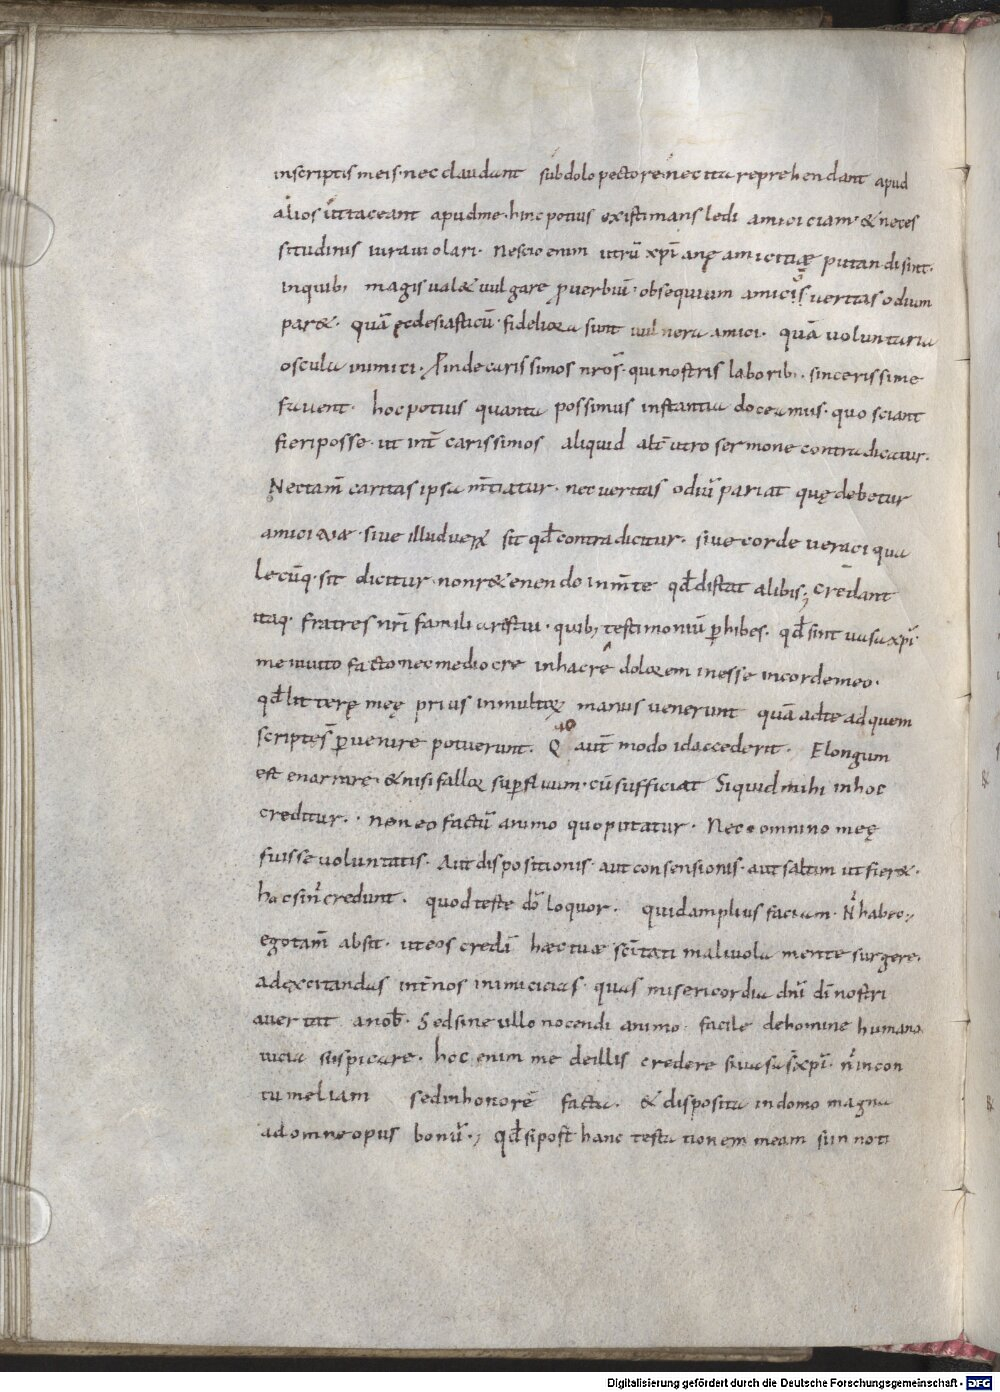 inscriptis meis· nec claudant subdolo pectore· nec ita reprehendant apud
alios ut taceant apud me· hinc potius existimans ledi amiciciam· & neces
situdinis iura uiolari· Nescio enim utrū xp̄i anę amicitiæ putandi sint·
in quib; magis ual& uulgare ꝓuerbiū· obsequium amicos ueritas odium
par&· quā ęcclesiasticū· fideliora sunt uulnera amici· quā uoluntaria
oscula inimici· Proinde carissimos nr̄os· qui nostris laborib; sincerissime
fauent· hoc potius quanta possimus instantia doceamus· quo sciant
fieri posse· ut int̄ carissimos aliquid alt̄utro sermone contradicatur·
Nec tam̄ caritas ipsa minuatur· nec ueritas odiū pariat quę debetur
amicitiæ· siue illud uerū sit qđ contradicitur· siue corde ueraci qua
lecūq· sit dicitur· non r&enendo in m̄te qđ distat a labiis; credant
itaq· fratres nr̄i familiares tui· quib; testimoniū ꝑhibes· qđ sint uasa xp̄i·
me inuito factū nec mediocrē in hac re dolorem inesse in corde meo·
qđ litterę meę prius in multorū manus uenerunt quā ad te ad quem
scriptę s̄ ꝑuenire potuerunt· Quo aut̄ modo id acciderit· E longum
est enarrare· & nisi fallor suꝑfluum· cū sufficiat Siquid mihi in hoc
creditur· non eo factū animo quo putatur· Nec omnino meę
fuisse uoluntatis· Aut dispositionis· aut consensionis· aut saltim ut fier&·
hac si n̄ credunt· quod teste dō loquor· quid amplius faciam· N̄ habeo;
ego tam̄ absit· ut eos credā hæc tuæ sc̄itati maliuola mente surgere·
ad excitandas int̄ nos inimicicias· quas misericordia dn̄i dī nostri
auertat a nob̄· Sed sine ullo nocendi animo facile de homine humana
uicia suspicare· hoc enim me de illis credere si uasa s̄ xp̄i· n̄ in con
tumeliam sed in honorē facta· & disposita in domo magna
ad omne opus bonū·; qđ si post hanc testationem meam si in noti